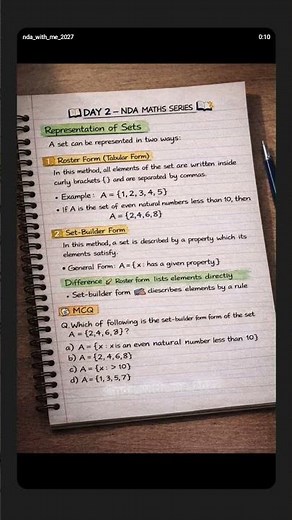 nda_with_me_2027
0:10
DAY 2 – NDA MATHS SERIES
Representation of Sets
A set can be represented in two ways:
1. Roster Form (Tabular Form)
In this method, all elements of the set are written inside
curly brackets { } and are separated by commas.
• Example: A = {1, 2, 3, 4, 5}
• If A is the set of even natural numbers less than 10, then
A = {2,4,6,8}
2. Set-Builder Form
In this method, a set is described by a property which its
elements satisfy.
• General Form: A = {x : x has a given property}
Difference Roster form lists elements directly
• Set-builder form describes elements by a rule
MCQ
Q. Which of following is the set-builder form form of the set
A = {2,4,6,8}?
a) A = {x : x is an even natural number less than 10}
b) A = {2,4,6,8}
c) A = {x : > 10}
d) A = {1,3,5,7}